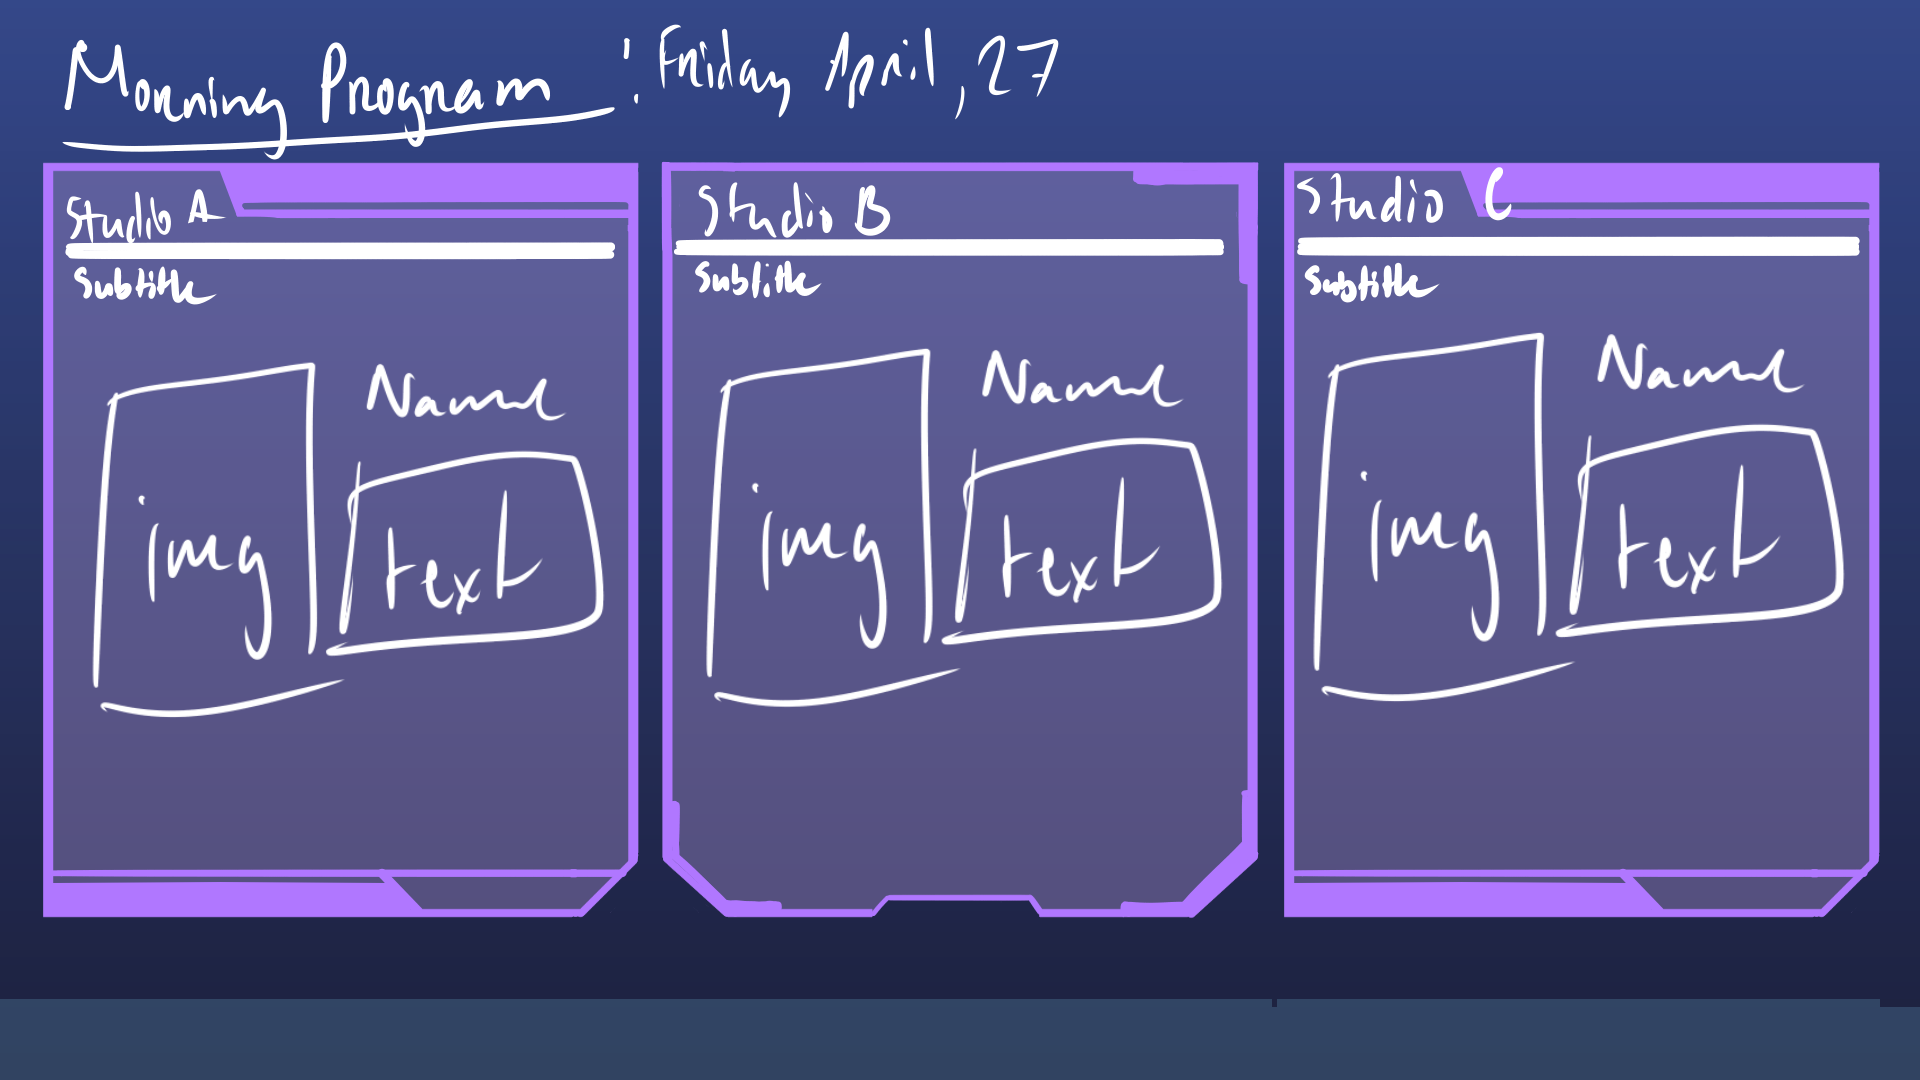 Morning Program : Friday April, 27
Studio A
Subtitle
Name
img
text
Studio B
Subtitle
Name
img
text
Studio C
Subtitle
Name
img
text